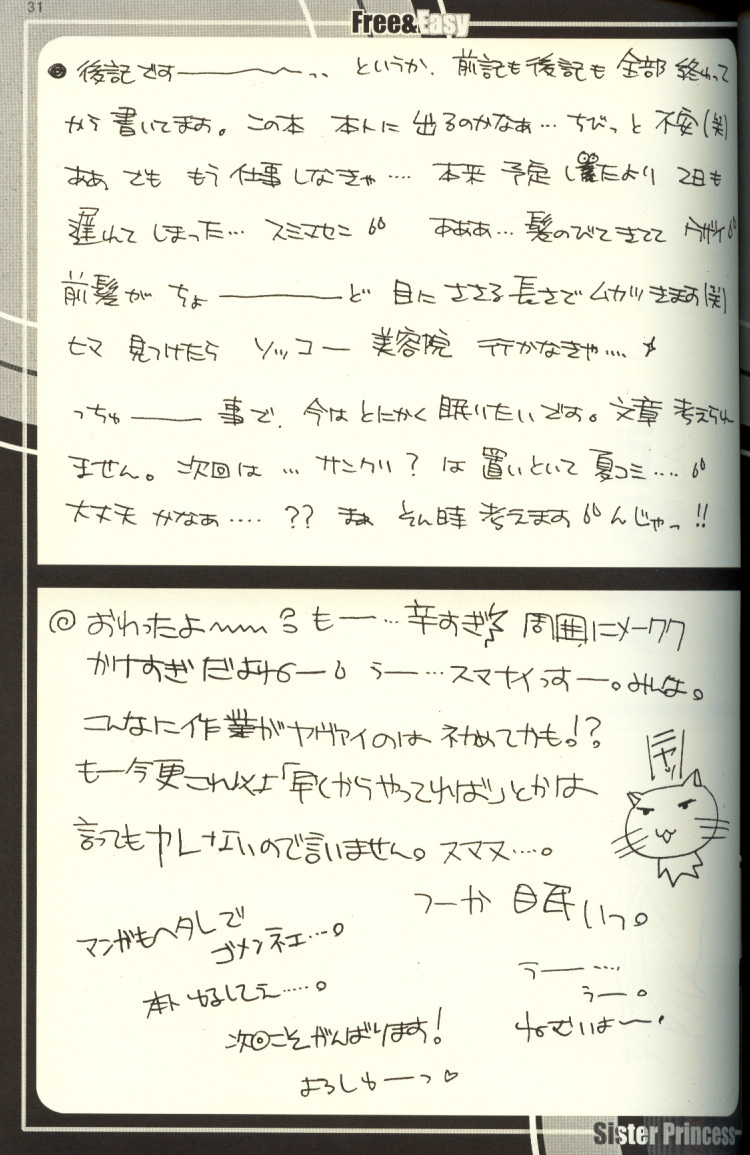 31
Free&Easy
後記です――――〜‥ というか、前記も後記も全部終わって
から書いてます。この本 本トに出るのかなぁ…ちびっと不安(笑)
ああ、でも もう仕事しなきゃ‥‥ 本来予定してたより 2日も
遅れてしまった… スミマセン あああ… 髪のびてきてて ウザイ
前髪が ちょ――――ど 目に ささる長さで ムカツきます(笑)
ヒマ 見つけたら ソッコー 美容院 行かなきゃ‥‥
っちゅ――― 事で、今は とにかく 眠いたいです。文章 考えられ
ません。次回は … サンクリ? は 置いといて 夏コミ‥‥
大丈夫かなぁ‥‥ ?? まぁ そん時 考えます んじゃっ!!
おわったよ〜〜 もー…辛すぎ 周囲にメーワク
かけすぎだよ うー…スマナイっすー。みんな。
こんなに作業がヤヴァイのは 初めてかも!?
もー今更これ以上「早くからやってれば」とかは
言っても ないので言いません。スマヌ…。
ニヤッ
つーか 眠いっ。
マンガもヘタレで
ゴメンネェ…。
うー‥‥
うー。
本ト ゆるしてぇ……。
ねむいよ〜
次回こそがんばります!
よろしゅーっ♡
Sister Princess